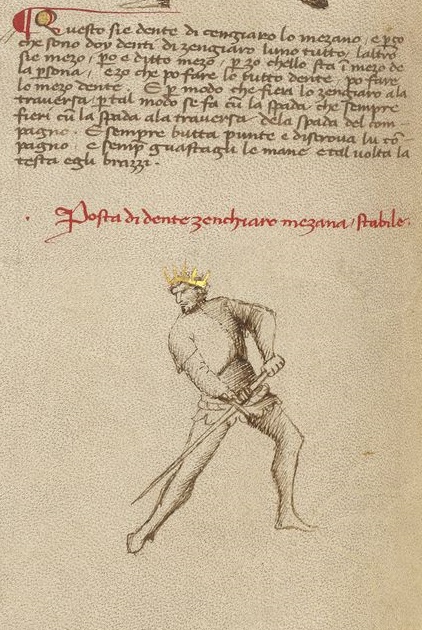 Questo sie dente di cengiaro lo mezano, e p̱ço
che sono doy denti di zengiaro luno tutto, laltro
sie mezo, p̱o e ditto mezo, p̱zo chello sta ī mezo de
la p̱sona, ezo che po fare lo tutto dente, po fare
lo mezo dente. E p̱ modo che fieri lo zengiaro ala
traversa, p̱ tal modo se fa cū la spada, che sempre
fieri cū la spada ala traversa, dela spada del com-
pagno. E sempre butta punte e discrova lu cō-
pagno, e semp̱ guastagli le mane e tal volta la
testa egli brazzi.
Posta di dente zenchiaro mezana, stabile.